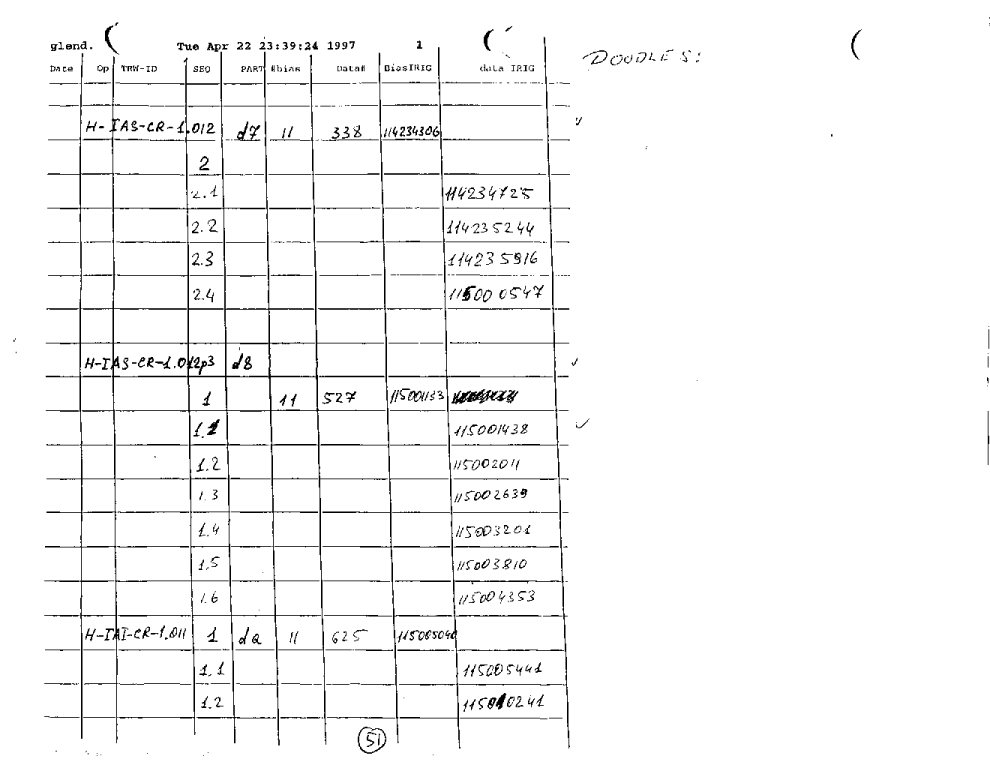 glend. Tue Apr 22 23:39:24 1997 1
DOODLES:
Date Op TRW-ID SEQ PART #bias Data# BiasIRIG data IRIG
H-IAS-CR-1.012 d7 11 338 114234306
2
2.1 114234725
2.2 114235244
2.3 114235916
2.4 115000547
H-IAS-CR-1.012p3 d8
1 11 527 115001133
1.1 115001438
1.2 115002011
1.3 115002639
1.4 115003201
1.5 115003810
1.6 115004353
H-IAI-CR-1.011 1 da 11 625 115005040
1.1 115005441
1.2 115010241
51